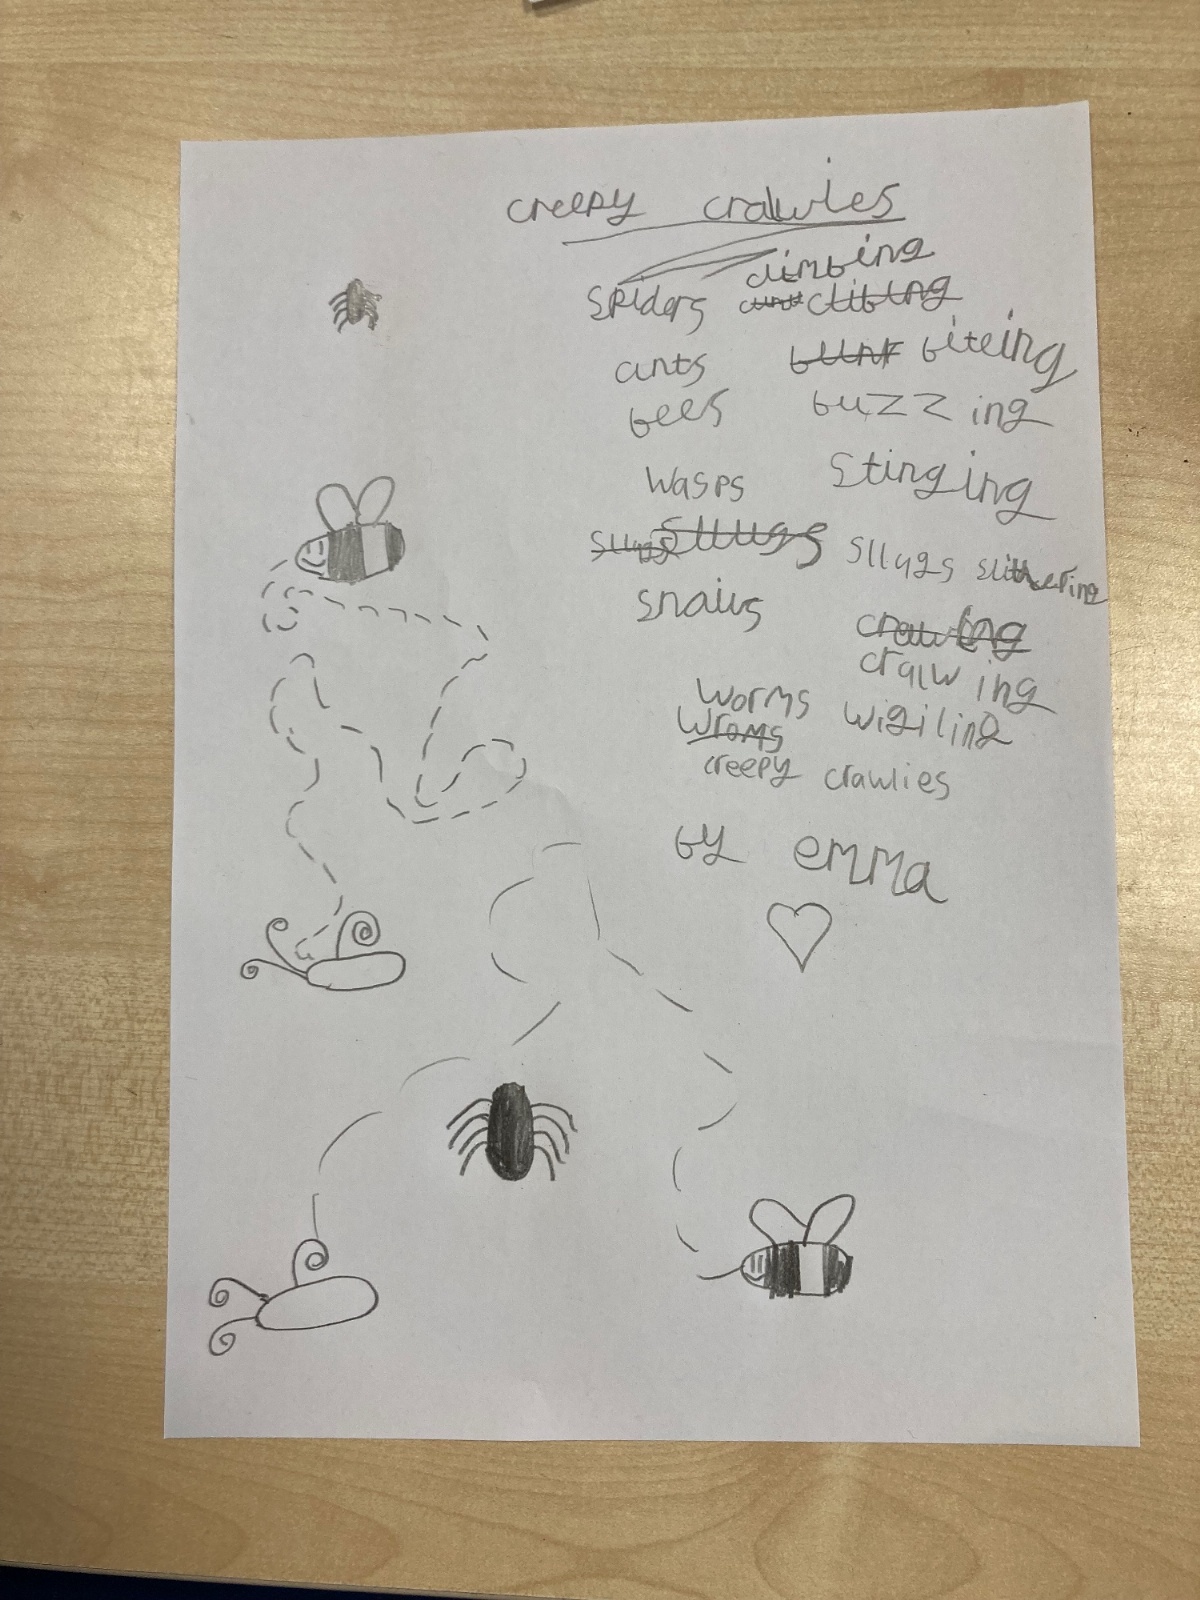 creepy crawlies
spiders climbing
clibing
ants biteing
bees buzzing
wasps stinging
sllugs slluggs sllugs slithering
snails crawling
cralwing
worms wigiling
wroms
creepy crawlies
by emma